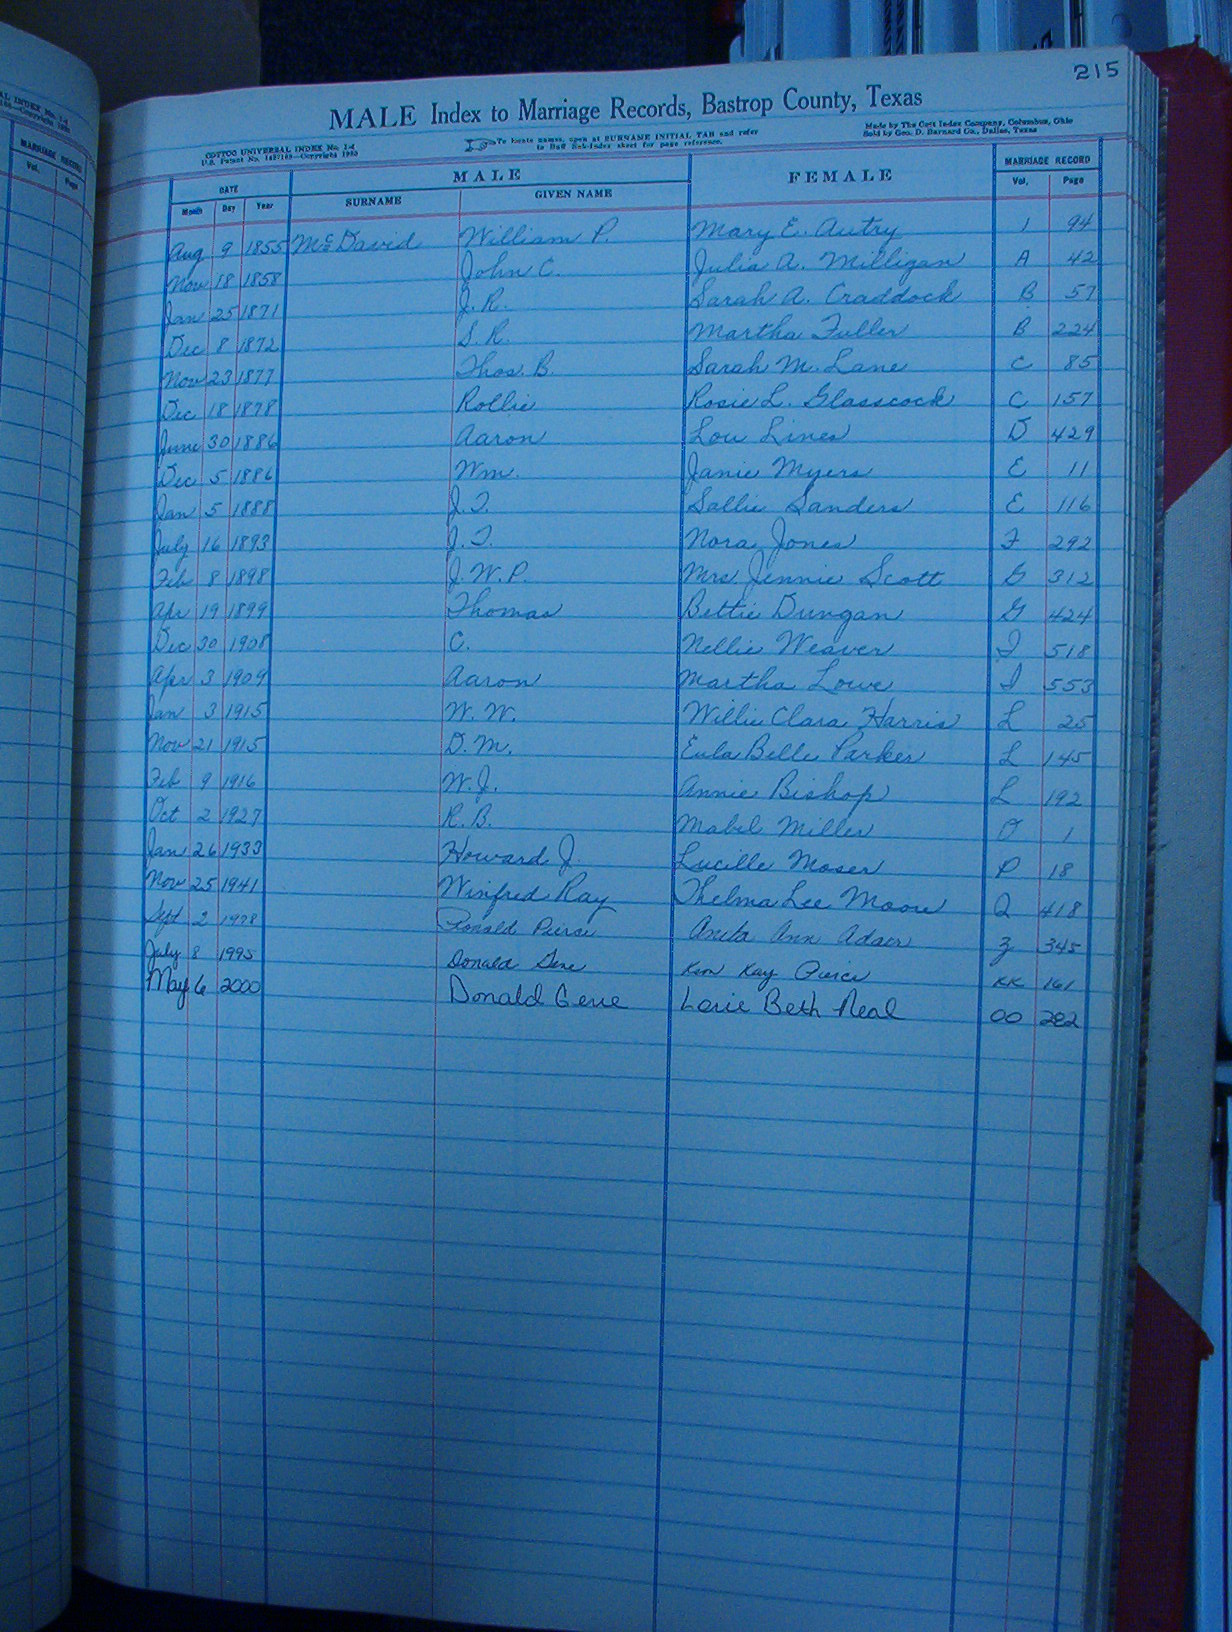 215
MALE Index to Marriage Records, Bastrop County, Texas
COTTCO UNIVERSAL INDEX No. 1-d
To locate names, open at SURNAME INITIAL TAB and refer
to Buff Sub-Index sheet for page reference.
Made by The Cott Index Company, Columbus, Ohio
Sold by Geo. D. Barnard Co., Dallas, Texas
DATE MALE FEMALE MARRIAGE RECORD
Month Day Year SURNAME GIVEN NAME Vol. Page
Aug 9 1855 McDavid William P. Mary E. Autry 1 94
Nov 18 1858 John C. Julia A. Milligan A 42
Jan 25 1871 J. R. Sarah A. Craddock B 57
Dec 8 1872 S. R. Martha Fuller B 224
Nov 23 1877 Thos. B. Sarah M. Lane C 85
Dec 18 1878 Rollie Rosie L. Glasscock C 157
June 30 1886 Aaron Lou Lines D 429
Dec 5 1886 Wm. Janie Myers E 11
Jan 5 1888 J. T. Sallie Sanders E 116
July 16 1893 J. T. Nora Jones F 292
Feb 8 1898 J. W. P. Mrs Jennie Scott G 312
Apr 19 1899 Thomas Bettie Dungan G 424
Dec 30 1908 C. Nellie Weaver I 518
Apr 3 1909 Aaron Martha Lowe I 553
Jan 3 1915 W. W. Willie Clara Harris L 25
Nov 21 1915 D. M. Eula Belle Parker L 145
Feb 9 1916 W. J. Annie Bishop L 192
Oct 2 1927 R. B. Mabel Miller O 1
Jan 26 1933 Howard J. Lucille Moser P 18
Nov 25 1941 Winfred Ray Thelma Lee Moore Q 418
Sept 2 1978 Ronald Pierse Anita Ann Z 345
July 8 1995 Donald Gene Kay Pierce KK 161
May 6 2000 Donald Gene Lorie Beth Neal OO 282
MARRIAGE RECORD
Vol. Page